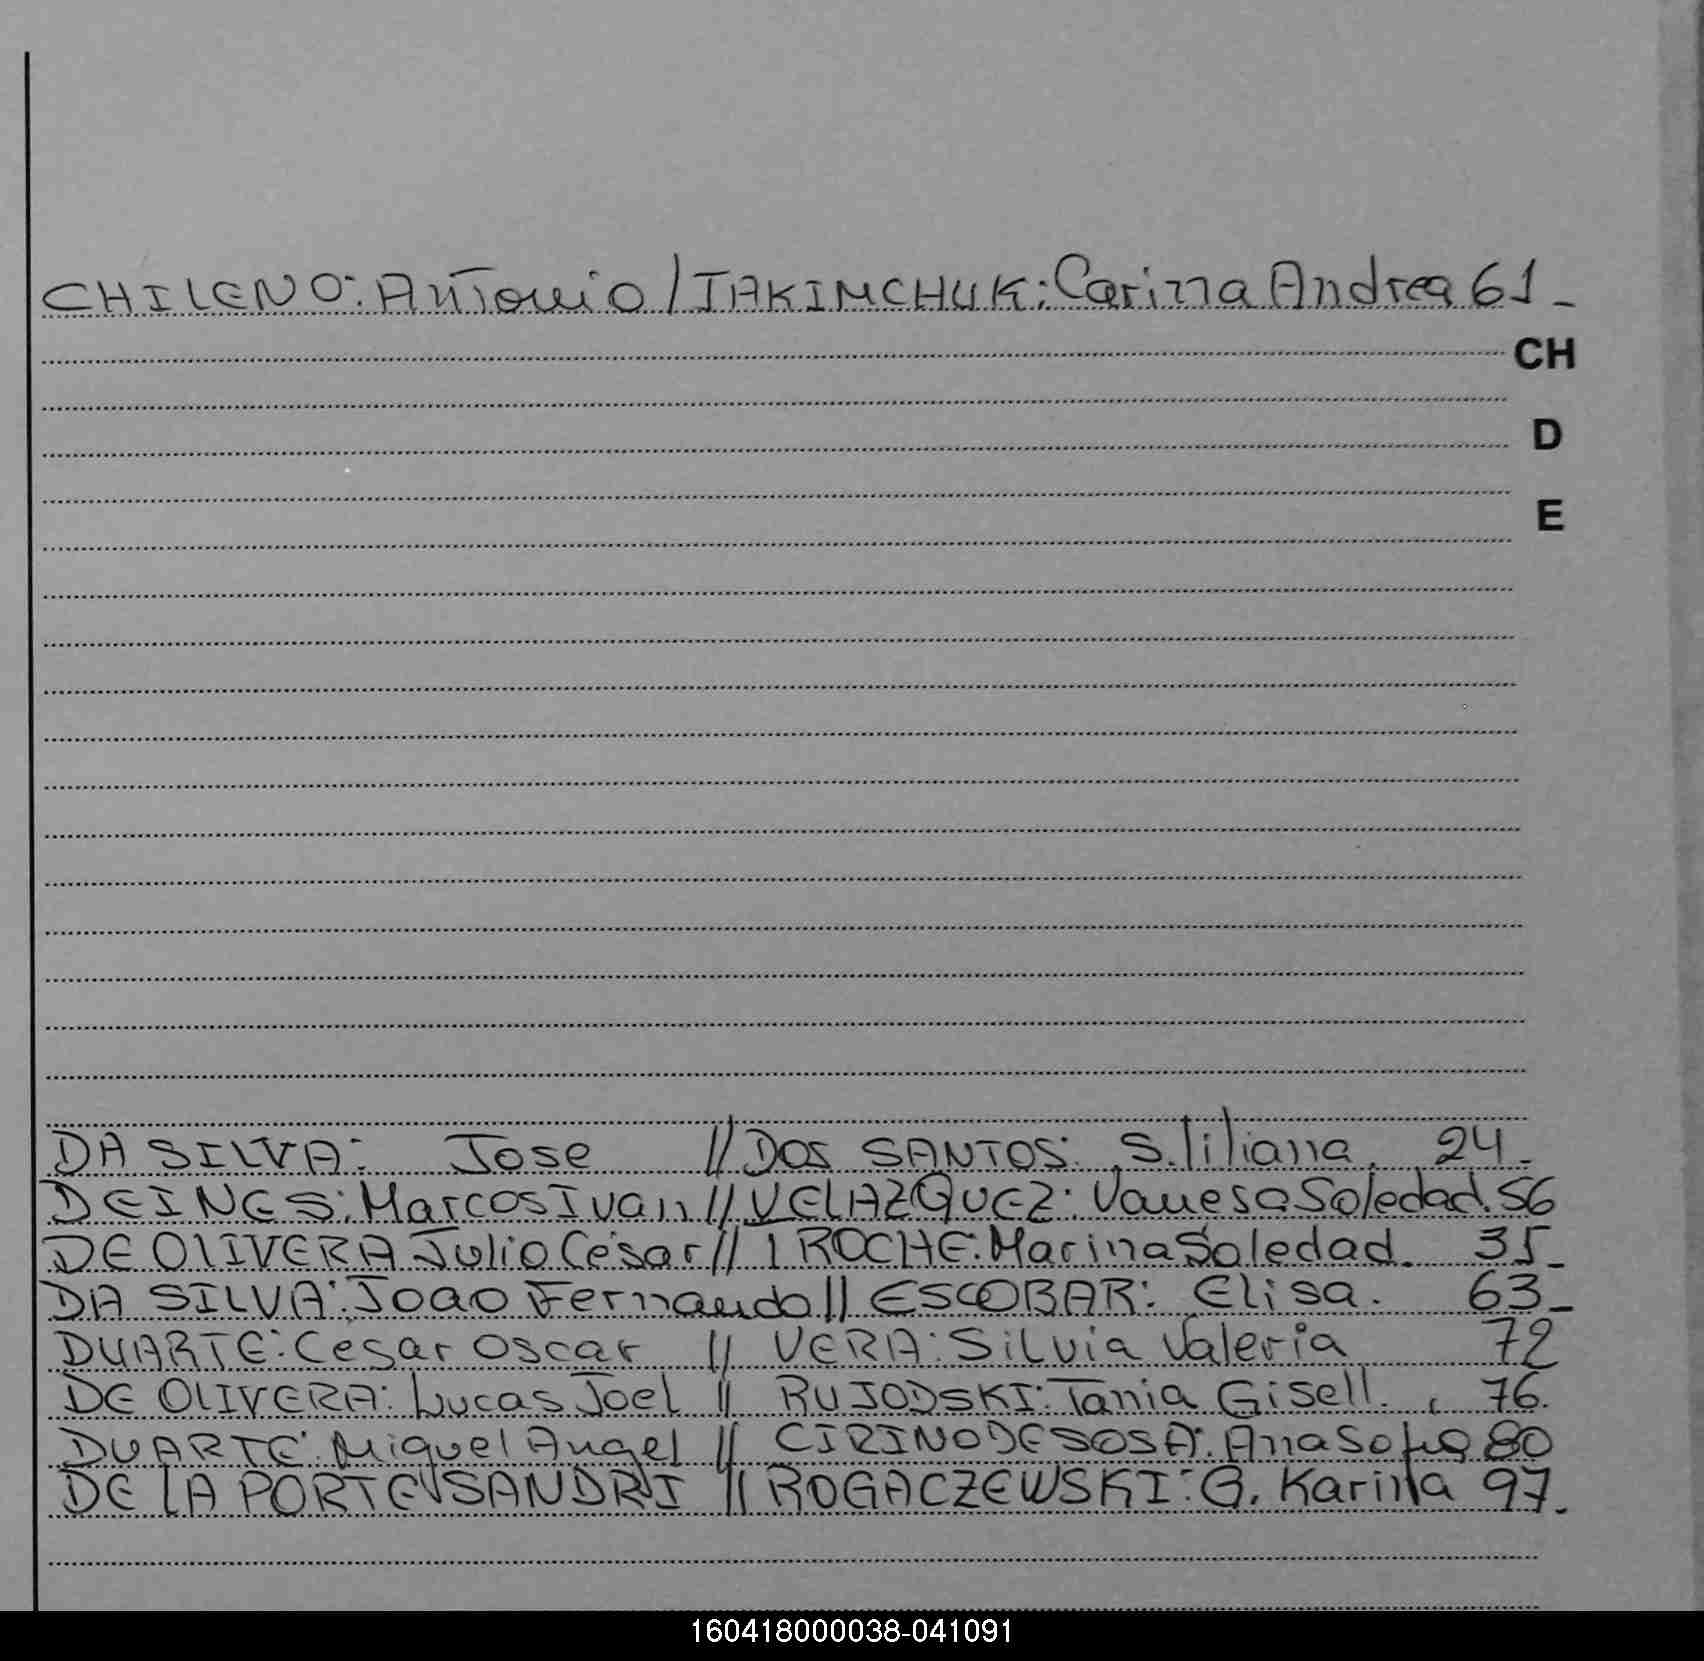 CHILENO: Antonio / JAKIMCHUK: Carina Andrea 61_
CH
D
E
DA SILVA: Jose // DOS SANTOS: S. liliana. 24_
DEINES: Marcos Ivan // VELAZQUEZ: Vanesa Soledad. 56
DE OLIVERA Julio César // IROCHE: Marina Soledad. 35_
DA SILVA: Joao Fernando // ESCOBAR: Elisa. 63_
DUARTE: César Oscar // VERA: Silvia Valeria 72
DE OLIVERA: Lucas Joel // RUJODSKI: Tania Gisell. 76.
DUARTE: Miguel Angel // CIRINO DE SOSA: Ana Sofia 80
DE LA PORTE SANDRI // ROGACZEWSKI: G. Karina 97_
160418000038-041091